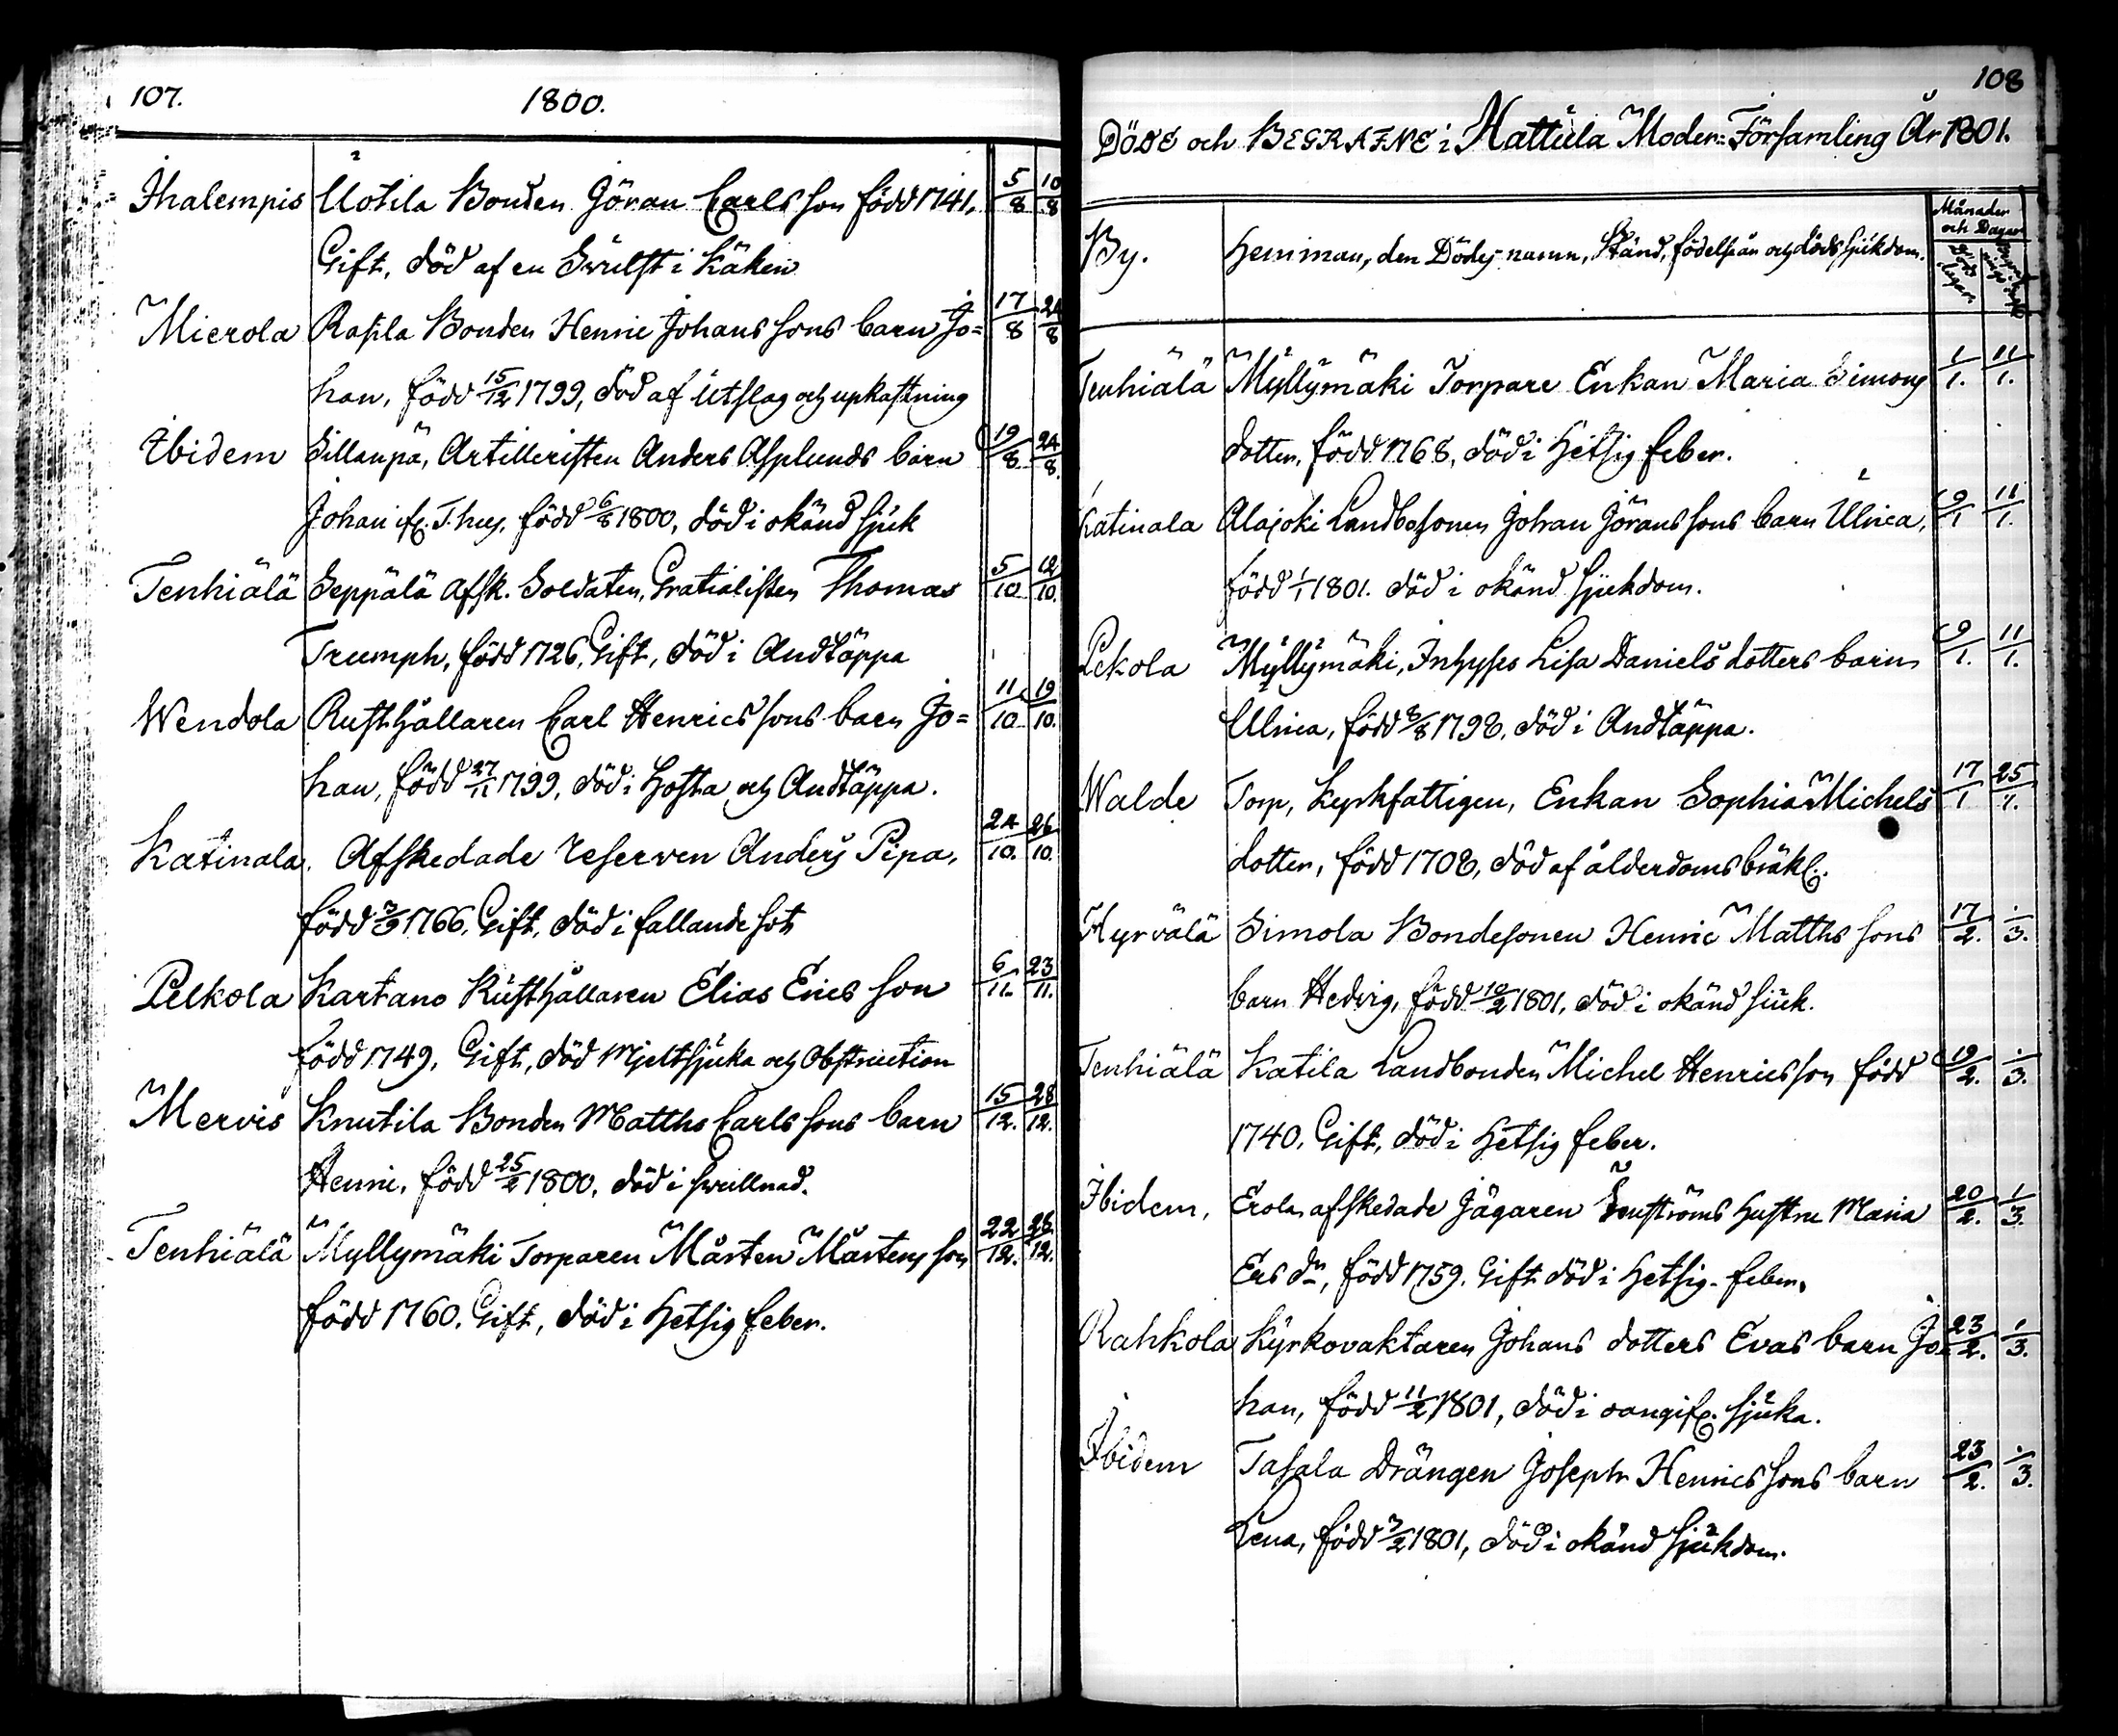 107.
1800.
Ihalempis Uotila Bonden Göran Carls son född 1741. 5/8 10/8
Gift, död af en Swulst i Käken
Mierola Rapla Bonden Henric Johans sons barn Jo= 17/8 24/8
han, född 15/12 1799, död af Utslag och upkastning
Ibidem Sillanpä, Artilleristen Anders Asplunds barn 19/8 24/8.
Johan född 6/8 1800, död i okänd sjuk
Tenhiälä Seppälä afsk. Soldaten, Gratialisten Thomas 5/10 12/10.
Triumph, född 1726, Gift, död i Andtäppa
Wendola Rusthållaren Carl Henrics sons barn Jo= 11/10 19/10.
han, född 27/11 1799, död i Hosta och Andtäppa.
Katinala. Afskedade reserven Anders Pipa, 24/10. 26/10
född 3/9 1766, Gift, död i fallande sot
Pelkola Kartano Rusthållaren Elias Erics son 6/11. 23/11.
född 1749, Gift, död Mjeltsjuka och Obstruction
Mervis Knutila Bonden Matths Carls sons barn 15/12. 28/12.
Henric, född 25/2 1800, död i swullnad.
Tenhiälä Myllymäki Torparen Mårten Mårtens son 22/12. 28/12.
född 1760. Gift, död i Hetsig feber.
108
DÖDE och BEGRAFNE i Hattula Moder=Församling År 1801.
By. Hemman, den Dödes namn, Stånd, födelse år och döds sjukdom. Månader
och Dagar
Tenhiälä Myllymäki Torpare Enkan Maria Simons 1/1. 11/1.
dotter, född 1768, död i Hetsig feber.
Katinala Alajoki Landbosonen Johan Görans sons barn Ulrica, 9/1 11/1.
född 1/1 1801. död i okänd sjukdom.
Pekola Myllymäki, Inhyses Lisa Daniels dotters barn 9/1. 11/1.
Ulrica, född 8/8 1798, död i Andtäppa.
Walde Torp, Kyrkfattigen, Enkan Sophia Michels 17/1 25/1.
dotter, född 1708, död af ålderdoms bräkl.
Hyrvälä Simola Bondesonen Henric Matths sons 17/2. 1/3.
barn Hedvig, född 10/2 1801, död i okänd sjuk.
Tenhiälä Katila Landbonden Michel Henrics son född 19/2. 1/3.
1740. Gift, död i Hetsig feber.
Ibidem, Erola afskedade Jägaren hustru Maria 20/2. 1/3.
Ers dr, född 1759. Gift död i Hetsig feber.
Rahkola Kyrkovaktaren Johans dotters Evas barn Jo= 23/2. 1/3.
han, född 11/2 1801, död i oangif. sjuka.
Ibidem Tasala Drängen Joseph Henrics sons barn 23/2. 1/3.
Lena, född 3/2 1801, död i okänd sjukdom.